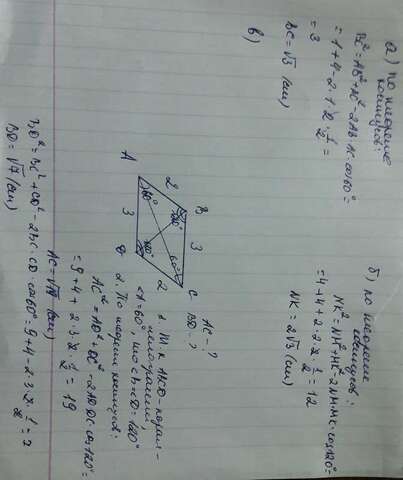 а) по теореме
косинусов:
BC² = AB² + AC² - 2AB·AC·cos60° =
= 1 + 4 - 2·1·2·1/2 =
= 3
BC = √3 (см)
б) по теореме
косинусов:
NK² = NM² + MK² - 2NM·MK·cos120° =
= 4 + 4 + 2·2·2·1/2 = 12
NK = 2√3 (см)
в)
A 2 B
60° 120°
3 3
120° 60°
D 2 C
AC - ?
BD - ?
1. Т.к ABCD парал-
лелограмм,
∠A = 60°, то ∠B = ∠D = 120°
2. По теореме косинусов:
AC² = AD² + DC² - 2AD·DC·cos120° =
= 9 + 4 + 2·3·2·1/2 = 19
AC = √19 (см)
BD² = BC² + CD² - 2BC·CD·cos60° = 9 + 4 - 2·3·2·1/2 = 7
BD = √7 (см)